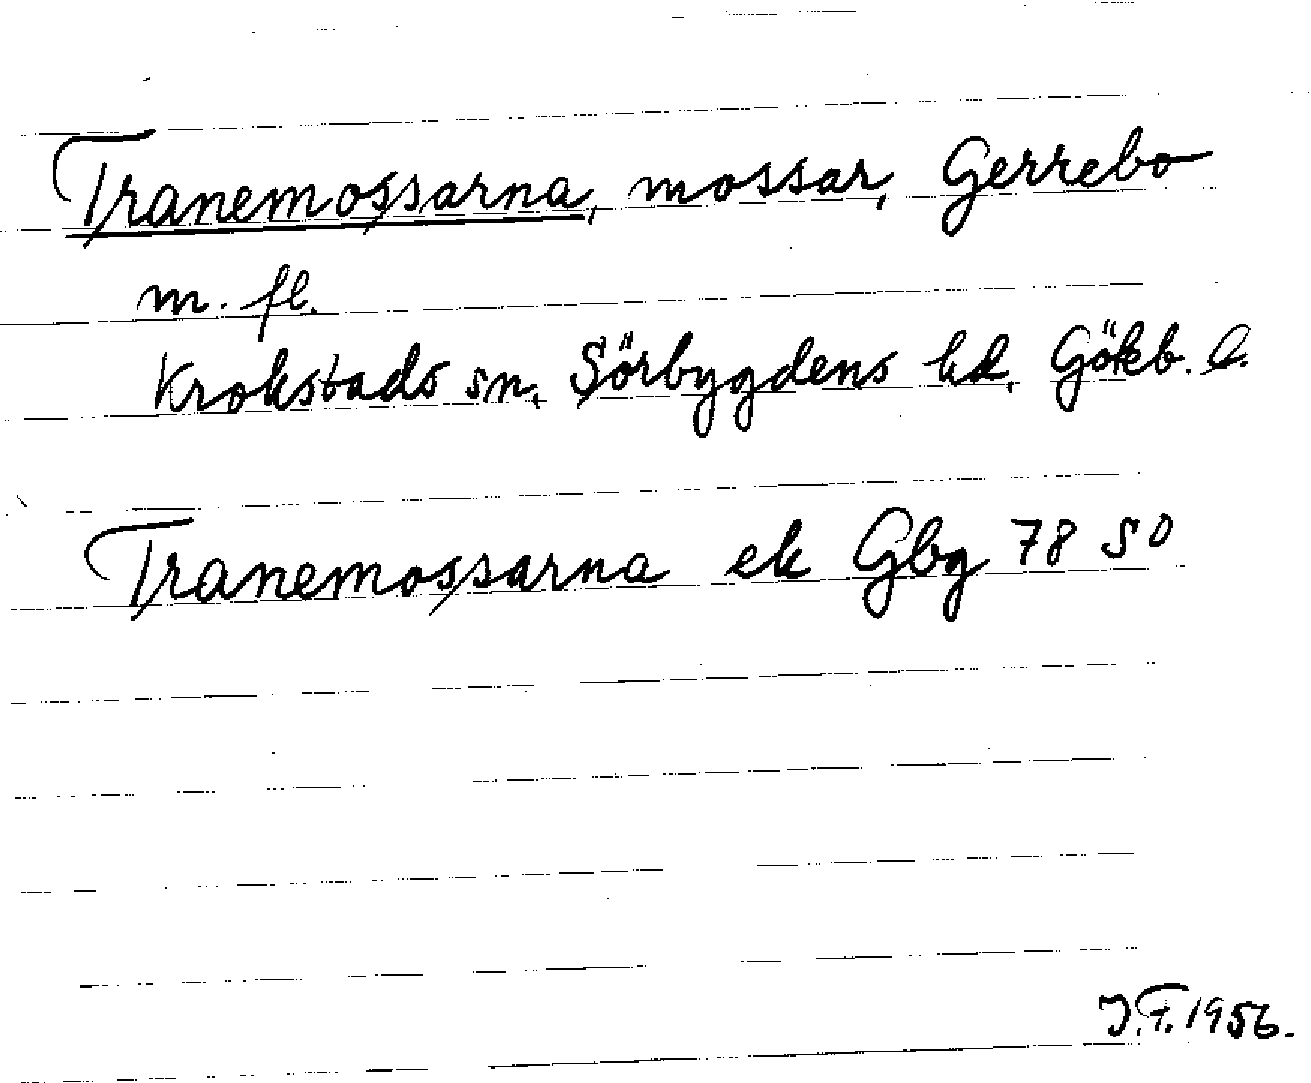 Tranemossarna, mossar, Gerrebo
m. fl.
Krokstads sn, Sörbygdens hd, Göteb. l.
Tranemossarna ek Gbg 78 SO
J.F. 1956.